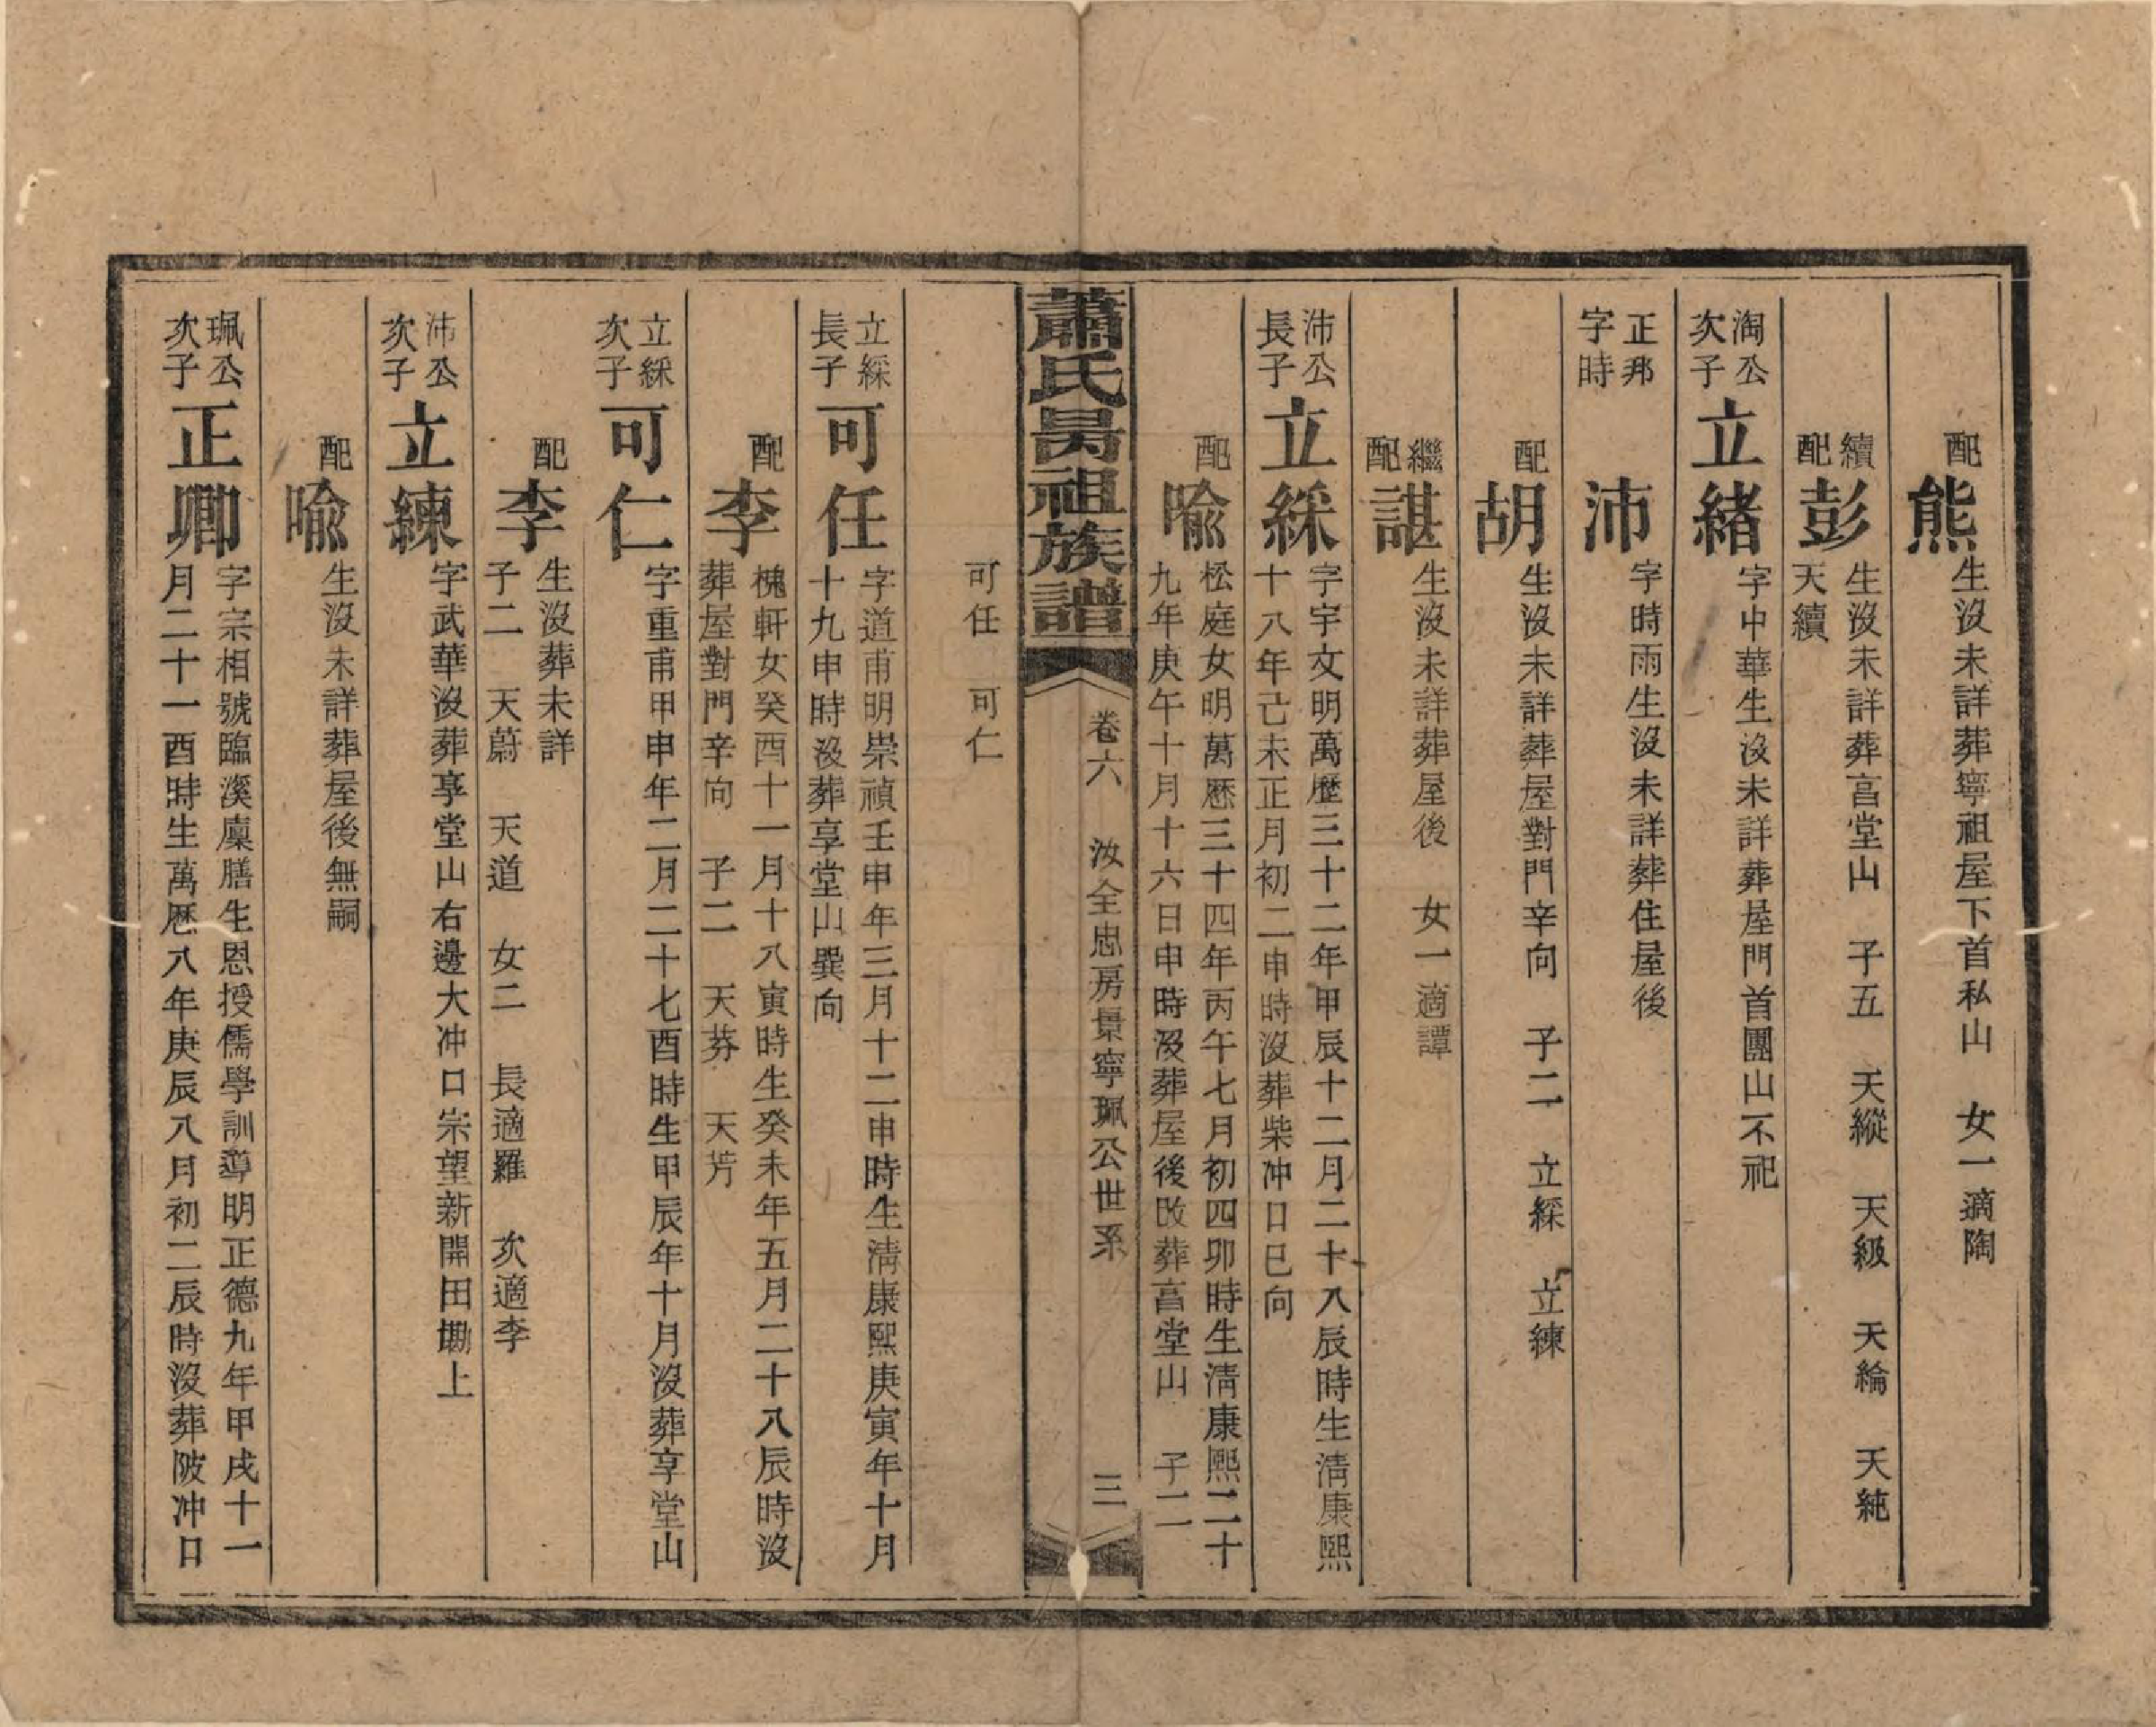 配
熊
生沒未詳葬寧祖屋下首私山 女一適陶
續
配
彭
生沒未詳葬富堂山 子五 天縱 天級 天綸 天純
天續
淘公
次子
立緒
字中華生沒未詳葬屋門首團山不祀
正邦
字時
沛
字時雨生沒未詳葬住屋後
配
胡
生沒未詳葬屋對門辛向 子二 立綵 立練
繼
配
諶
生沒未詳葬屋後 女一適譚
沛公
長子
立綵
字宇文明萬歷三十二年甲辰十二月二十八辰時生清康熙
十八年己未正月初二申時沒葬柴冲口巳向
配
喩
松庭女明萬厯三十四年丙午七月初四卯時生清康熙二十
九年庚午十月十六日申時沒葬屋後改葬富堂山 子二
蕭氏昺祖族譜
卷六
汝全忠房景寧珮公世系
三
可任 可仁
立綵
長子
可任
字道甫明崇禎壬申年三月十二申時生清康熙庚寅年十月
十九申時沒葬享堂山巽向
配
李
槐軒女癸酉十一月十八寅時生癸未年五月二十八辰時沒
葬屋對門辛向 子二 天芬 天芳
立綵
次子
可仁
字重甫甲申年二月二十七酉時生甲辰年十月沒葬享堂山
配
李
生沒葬未詳
子二 天蔚 天道 女二 長適羅 次適李
沛公
次子
立練
字武華沒葬享堂山右邊大冲口宗望新開田墈上
配
喩
生沒未詳葬屋後無嗣
珮公
次子
正卿
字宗相號臨溪廩膳生恩授儒學訓導明正德九年甲戌十一
月二十一酉時生萬厯八年庚辰八月初二辰時沒葬陂冲口